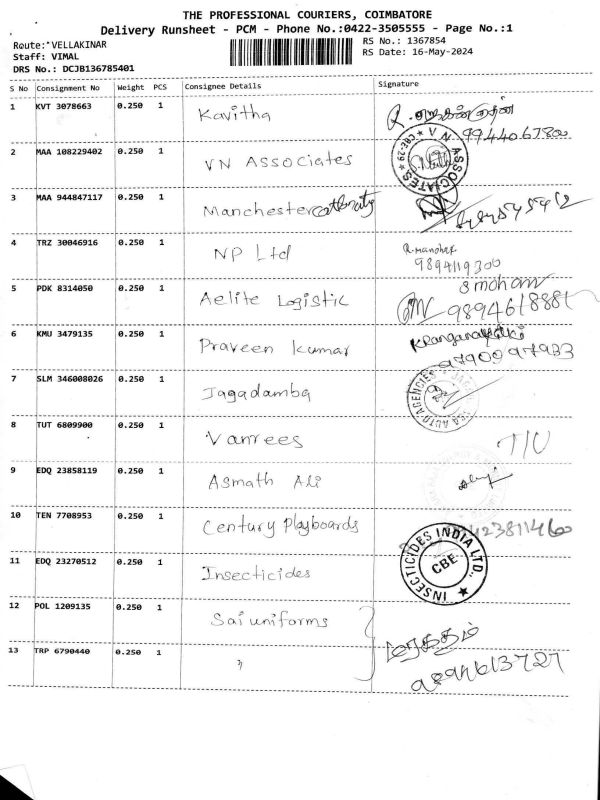 THE PROFESSIONAL COURIERS, COIMBATORE
Delivery Runsheet - PCM - Phone No.:0422-3505555 - Page No.:1
Route: VELLAKINAR
Staff: VIMAL
DRS No.: DCJB136785401
RS No.: 1367854
RS Date: 16-May-2024
S No Consignment No Weight PCS Consignee Details Signature
1 KVT 3078663 0.250 1 Kavitha 9944067800
2 MAA 108229402 0.250 1 VN Associates VN ASSOCIATES CBE-29
3 MAA 944847117 0.250 1 Manchester
4 TRZ 30046916 0.250 1 NP Ltd R. manohar
9894119300
5 PDK 8314050 0.250 1 Aelite Logistic S mohan
6 KMU 3479135 0.250 1 Praveen kumar
7 SLM 346008026 0.250 1 Jagadamba AUTO AGENCIES
8 TUT 6809900 0.250 1 Vanrees
9 EDQ 23858119 0.250 1 Asmath Ali
10 TEN 7708953 0.250 1 Century Playboards
11 EDQ 23270512 0.250 1 Insecticides INSECTICIDES INDIA LTD., CBE
12 POL 1209135 0.250 1 Sai uniforms
13 TRP 6790440 0.250 1 மரகதம்